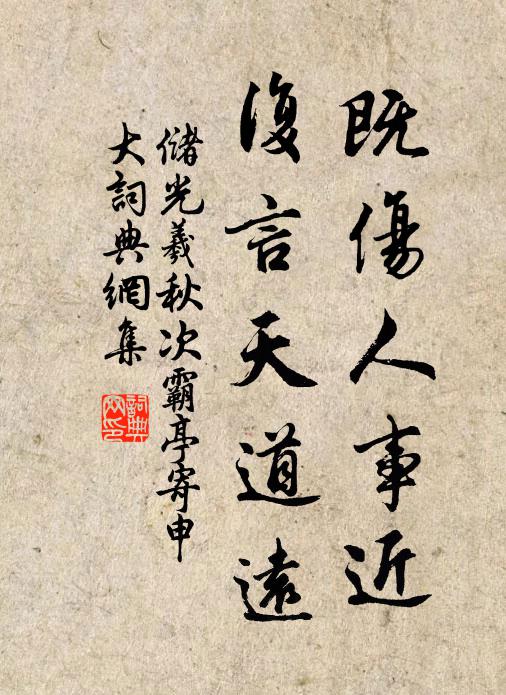 既傷人事近
復言天道遠
儲光羲秋次霸亭寄申
大詞典網集